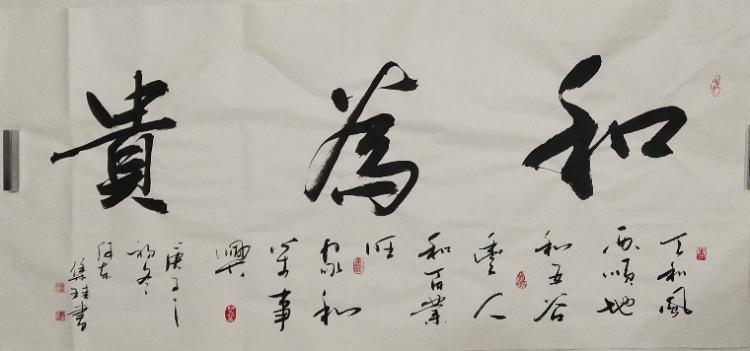 和為貴
天和風
雨順地
和五谷
豐人
和百業
旺
家和
萬事
興
庚子
初冬
集珪書